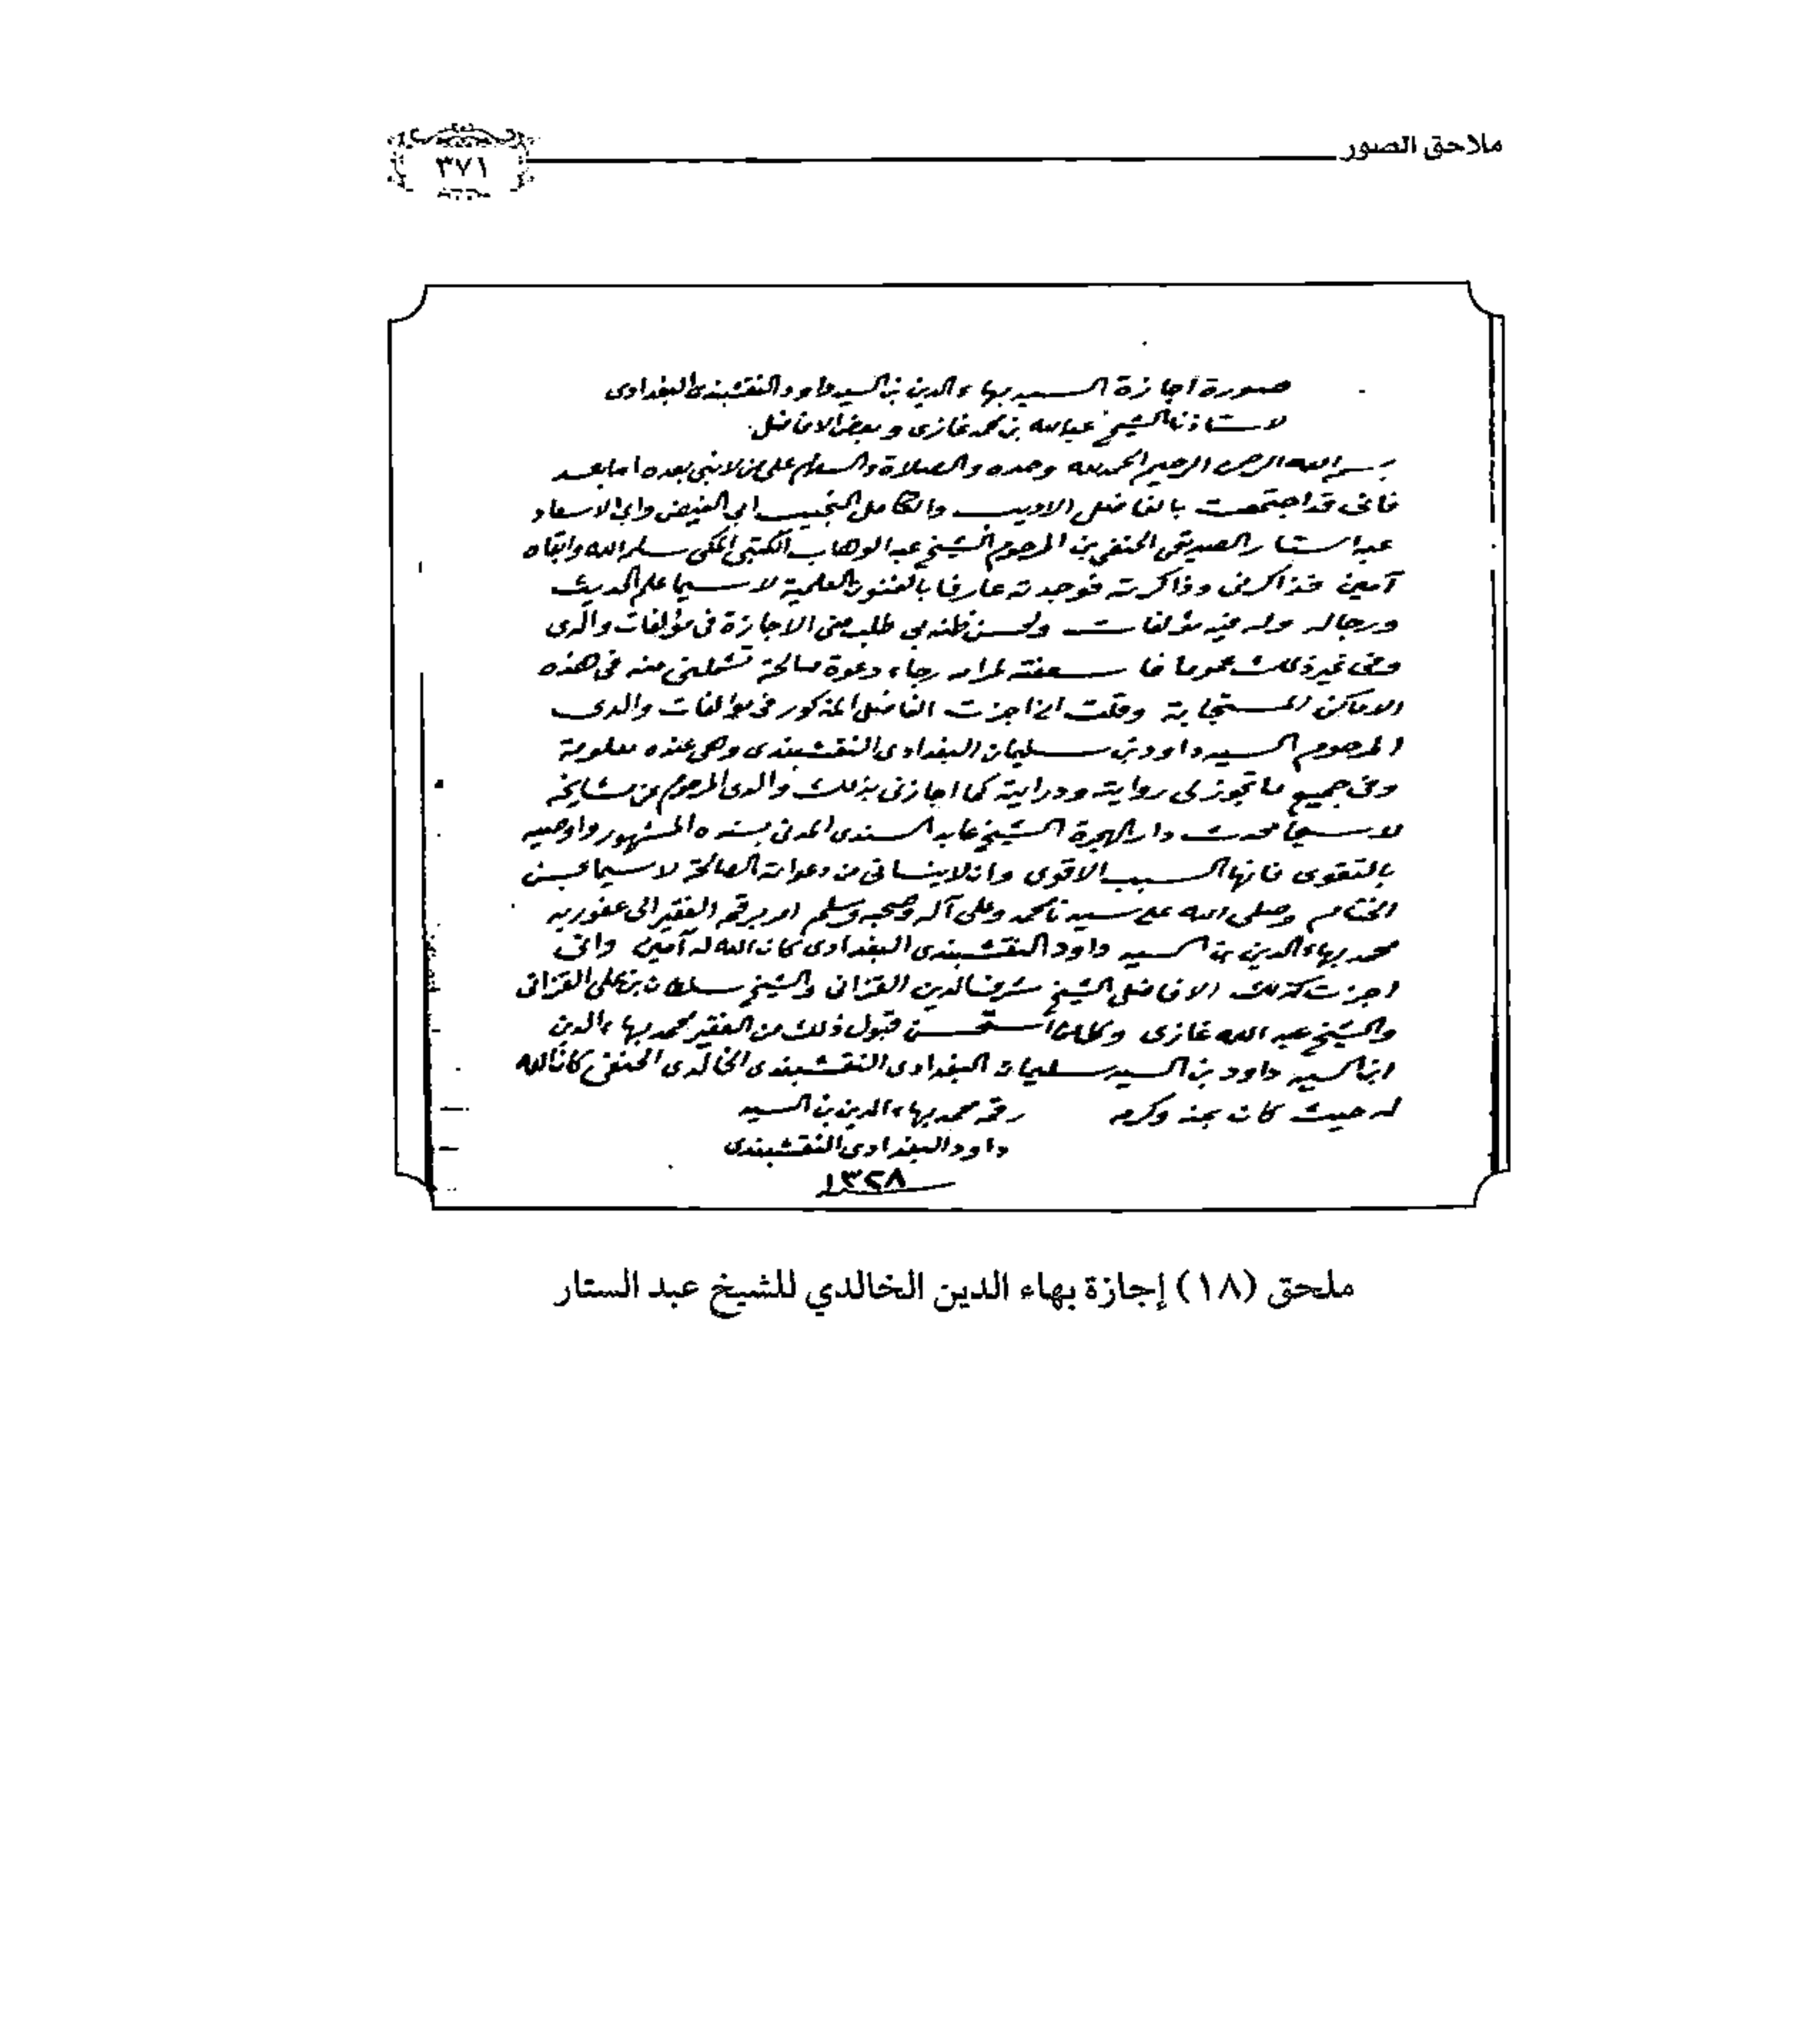 ملاحق الصور
٣٧١
صورة اجازة السيد بهاء الدين بن السيد داود النقشبندي البغدادى
لاستاذنا الشيخ عبد الله بن محمد غازى وبعض الافاضل
بسم الله الرحمن الرحيم الحمد لله وحده والصلاة والسلام على من لا نبى بعده اما بعد
فانى قد اجتمعت بالفاضل الاديب والكامل النجيب ابى الفيض وابى الاسعاد
عبد الستار الصديقى الحنفى بن المرحوم الشيخ عبد الوهاب الكتبى المكى سلمه الله وابقاه
آمين فذاكرنى وذاكرته فوجدته عارفا بالفنون العلمية لا سيما علم الحديث
ورجاله وله فيه مؤلفات ولحسن ظنه بى طلب منى الاجازة فى مؤلفات والدى
وفى غير ذلك عموما فاسعفته لمرامه رجاء دعوة صالحة تشملنى منه فى هذه
الاماكن المستجابة وقلت انى اجزت الفاضل المذكور فى مؤلفات والدى
المرحوم السيد داود بن سليمان البغدادى النقشبندى وهى عنده معلومة
وفى جميع ما تجوز لى رواية ودراية كما اجازنى بذلك والدى المرحوم عن مشايخه
لا سيما محدث دار الهجرة الشيخ عابد السندى المدنى بسنده المشهور واوصيه
بالتقوى فانها السبب الاقوى وان لا ينسانى من دعواته الصالحة لا سيما بحسن
الختام وصلى الله على سيدنا محمد وعلى آله وصحبه وسلم امر برقمه الفقير الى عفو ربه
محمد بهاء الدين بن السيد داود النقشبندى البغدادى كان الله له آمين وانى
اجزت كذلك الافاضل الشيخ شرف الدين القزانى والشيخ سلطان بن على القزانى
والشيخ عبد الله غازى وكل من استحسن قبول ذلك من الفقير محمد بهاء الدين
ابن السيد داود بن السيد سليمان البغدادى النقشبندى الخالدى الحنفى كان الله
له حيث كان بمنه وكرمه رقمه محمد بهاء الدين بن السيد
داود البغدادى النقشبندى
١٣٢٨
ملحق (١٨) إجازة بهاء الدين الخالدي للشيخ عبد الستار